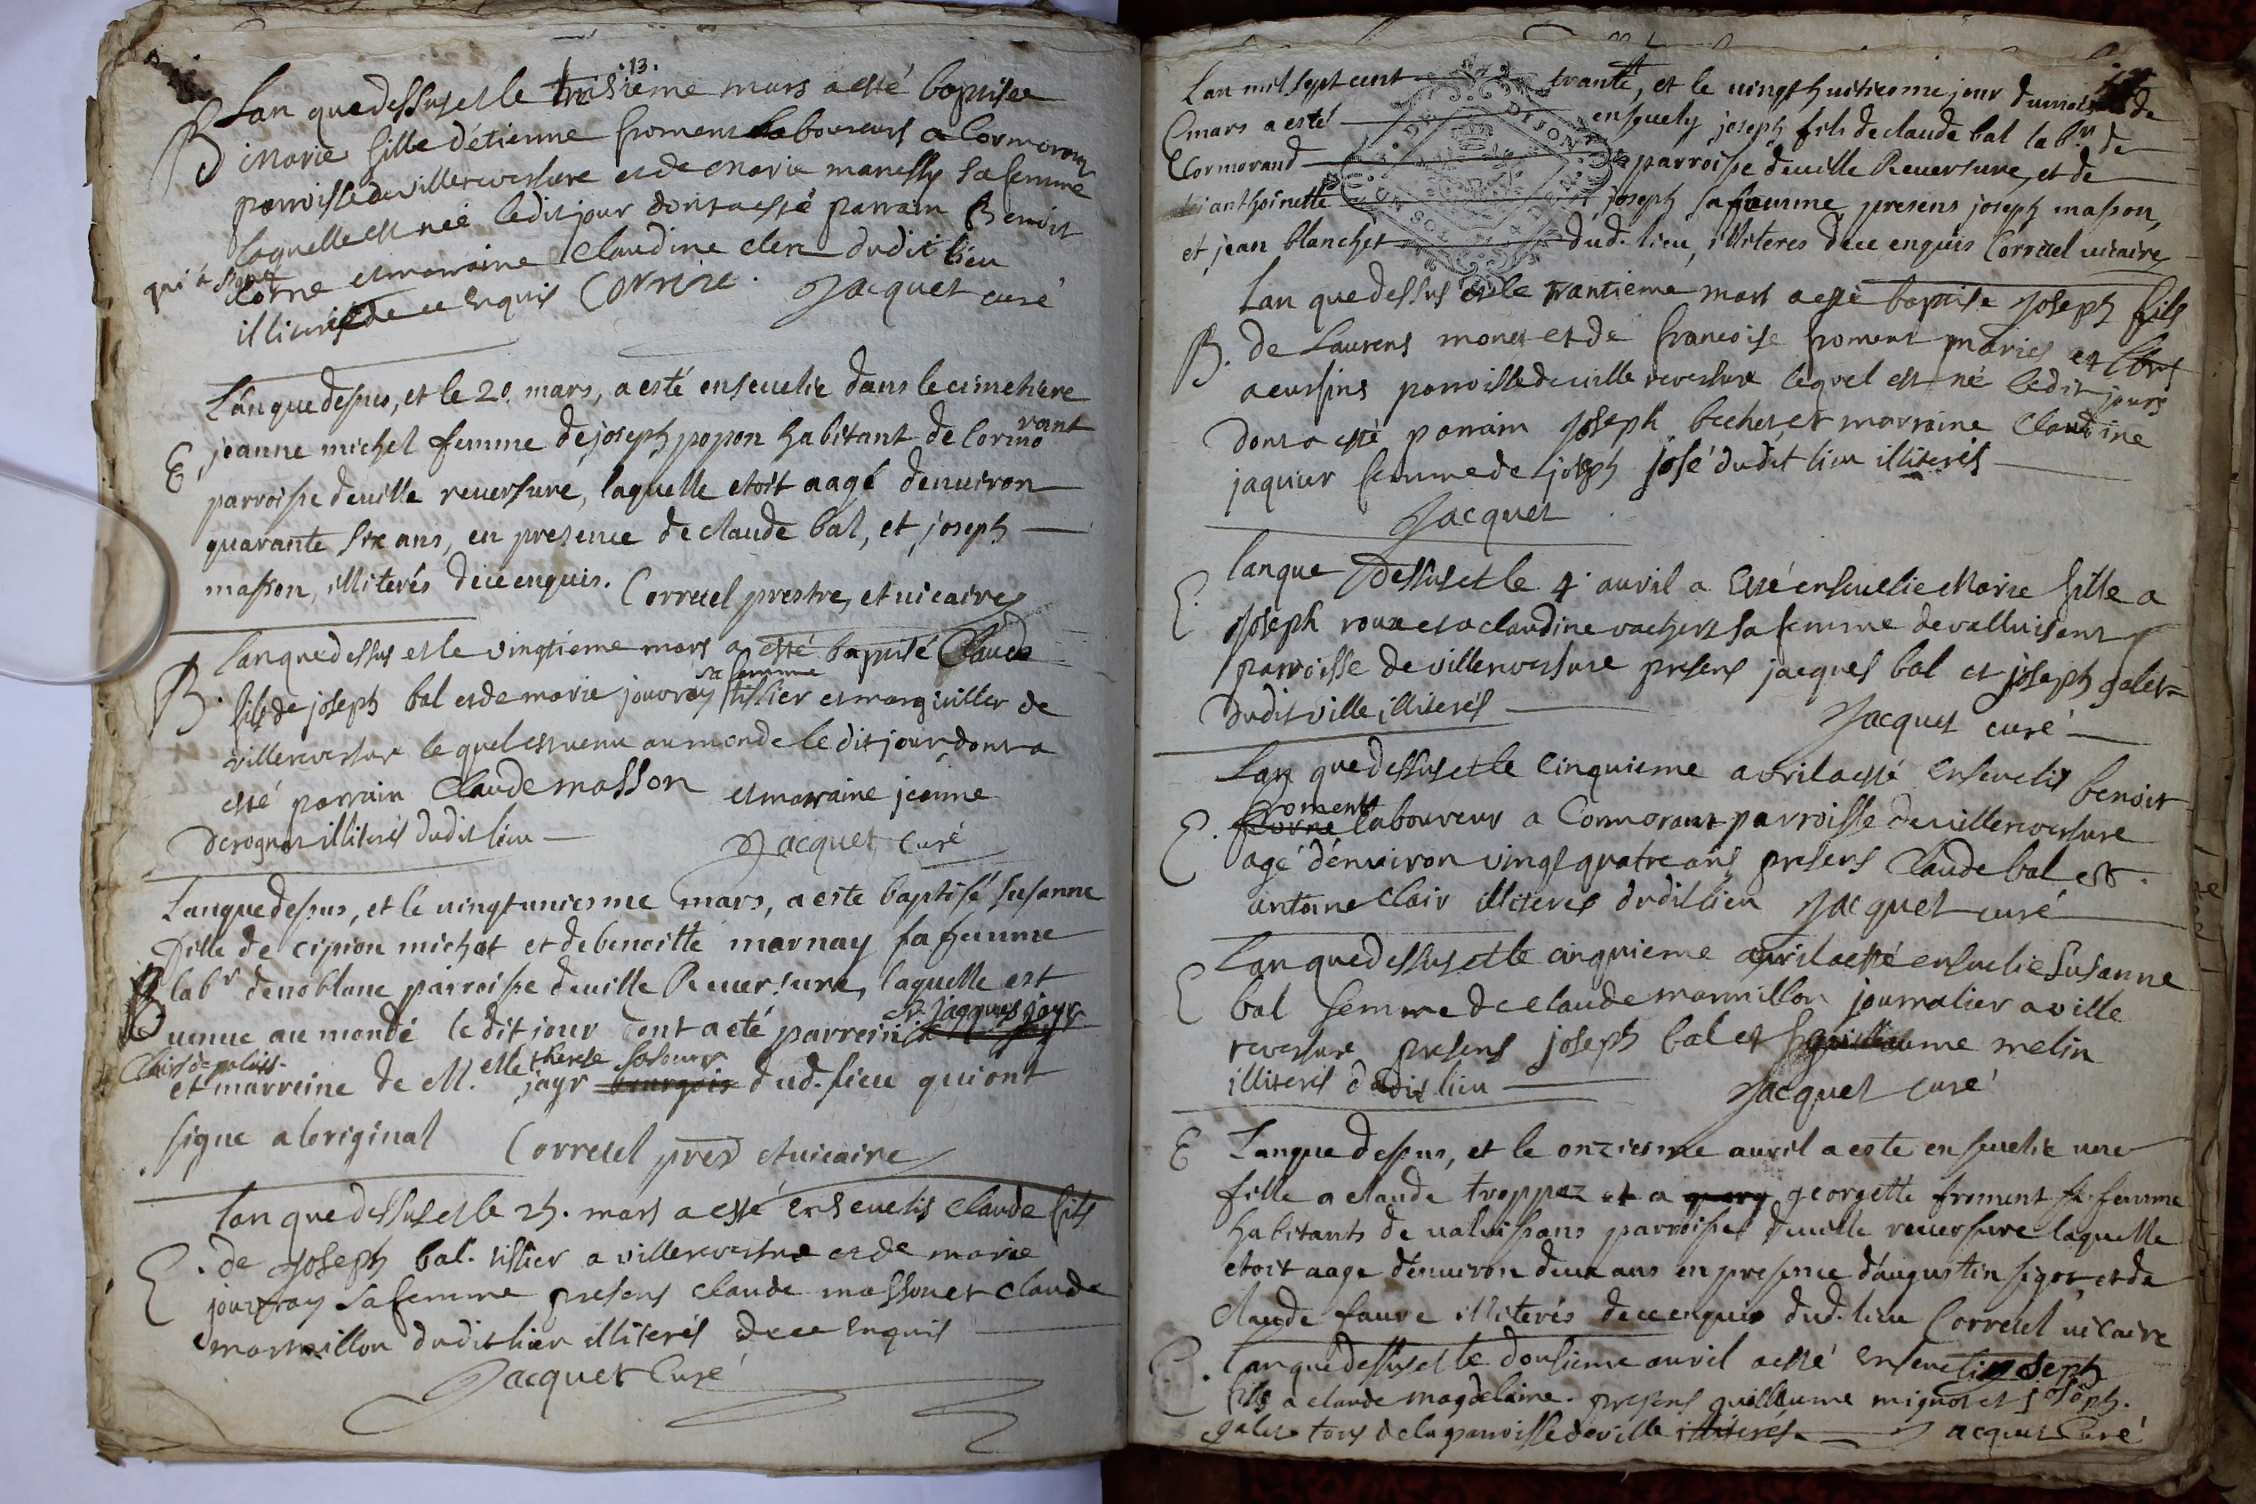 .13.
B Lan que dessus et le troisieme mars a esté baptisee
Marie fille d'étienne froment laboureurs a Cormoran
parroisse de villereversure et de Marie marechy sa femme
laquelle est neé ledit jour dont a esté parrain Benoit
qui a signé
Corne et marraine Claudine clere dudit lieu
illiterés de ce enquis Corne. Jacquet curé
L'an que dessus, et le 20. mars, a esté ensevelie dans le cimetiere
E jeanne michel femme de joseph popon habitant de Cormo
rant
parroisse de ville reversure, laquelle etoit aagé denviron
quarante six ans, en presence de claude bal, et joseph
masson, illiterés de ce enquis. Corretel prestre, et vicaire
Lan que dessus et le vingtieme mars a esté baptisé Claude
sa femme
B. fils de joseph bal et de marie jouvray tissier et marguiller de
villereversure le quel est venu au monde le dit jour, dont a
esté parrain Claude masson et marraine jeanne
derognat illiterés dudit lieu
Jacquet curé
Lan que dessus, et le vingt uniesme mars, a este baptisé susanne
fille de cipion michet et de benoitte marnay sa femme
B labr de noblane parroisse de ville Reversure, laquelle est
Sr. jacques jayr
venue au monde le dit jour dont a eté parrein
Clerc de palais therese sa soeur
et marreine de Melle jayr bourgois dud. lieu qui ont
signe a loriginal Corretel pres et vicaire
Lan que dessus et le 25. mars a esté ensevelis Claude fils
E. de Joseph bal. tissier a villereversure et de marie
jouvray sa femme presens claude masson et claude
marmillon dudit lieu illiterés de ce enquis
Jacquet Curé
Lan mil sept cent trante, et le vingt huitiesme jour du mois de
mars a esté ensevely joseph fils de claude bal labr. de
Cormorand parroisse de ville Reversure, et de
anthoinette joseph sa femme, presens joseph masson,
et jean blanchet dud. lieu, illiteres de ce enquis Corretel vicaire
DIJON
Lan que dessus et le trantieme mars a esté baptise Joseph fils
B. de Laurens monet et de francoise froment mariés et
a cursins parroisse de ville reversure lequel est né ledit jours
dont a esté parrain Joseph bechet, et marraine Claudine
jaquier femme de joseph josé dudit lieu illiterés
Jacquet
lan que dessus et le 4. avril a esté ensevelie Marie fille a
E. Joseph roux et a claudine vachert sa femme de valluisant
parroisse de villereversure presens jacques bal et joseph galet
dudit ville illiterés
Jacquet curé
Lan que dessus et le cinquieme avril a esté ensevelis benoit
froment
E. Corne laboureur a Cormorant parroisse de villereversure
agé d'enviiron vingt quatre ans presens Claude bal et
antoine Clair illiteres dudit lieu Jacquet curé
Lan que dessus et le cinquieme avril a esté ensevelie Susanne
E bal femme de claude marmillon journalier a ville
reversure presens joseph bal et guillaume melin
illiterés dudit lieu
Jacquet curé
E Lan que dessus, et le onziesme avril a este ensevelie une
fille a claude troppaz et a georgette froment sa femme
habitants de valuissans parroisse de ville reversure laquelle
etoit aage d'environ deux ans en presence d'augustin sigot, et de
claude favre illiterés de ce enquis dud. lieu Corretel vicaire
E. Lan que dessus et le dousieme avril a esté ensevelis Joseph
fils a claude magdelaine. presens guillaume mignot et josoph.
galet tous de la parroisse de ville illiterés. Jacquet Curé